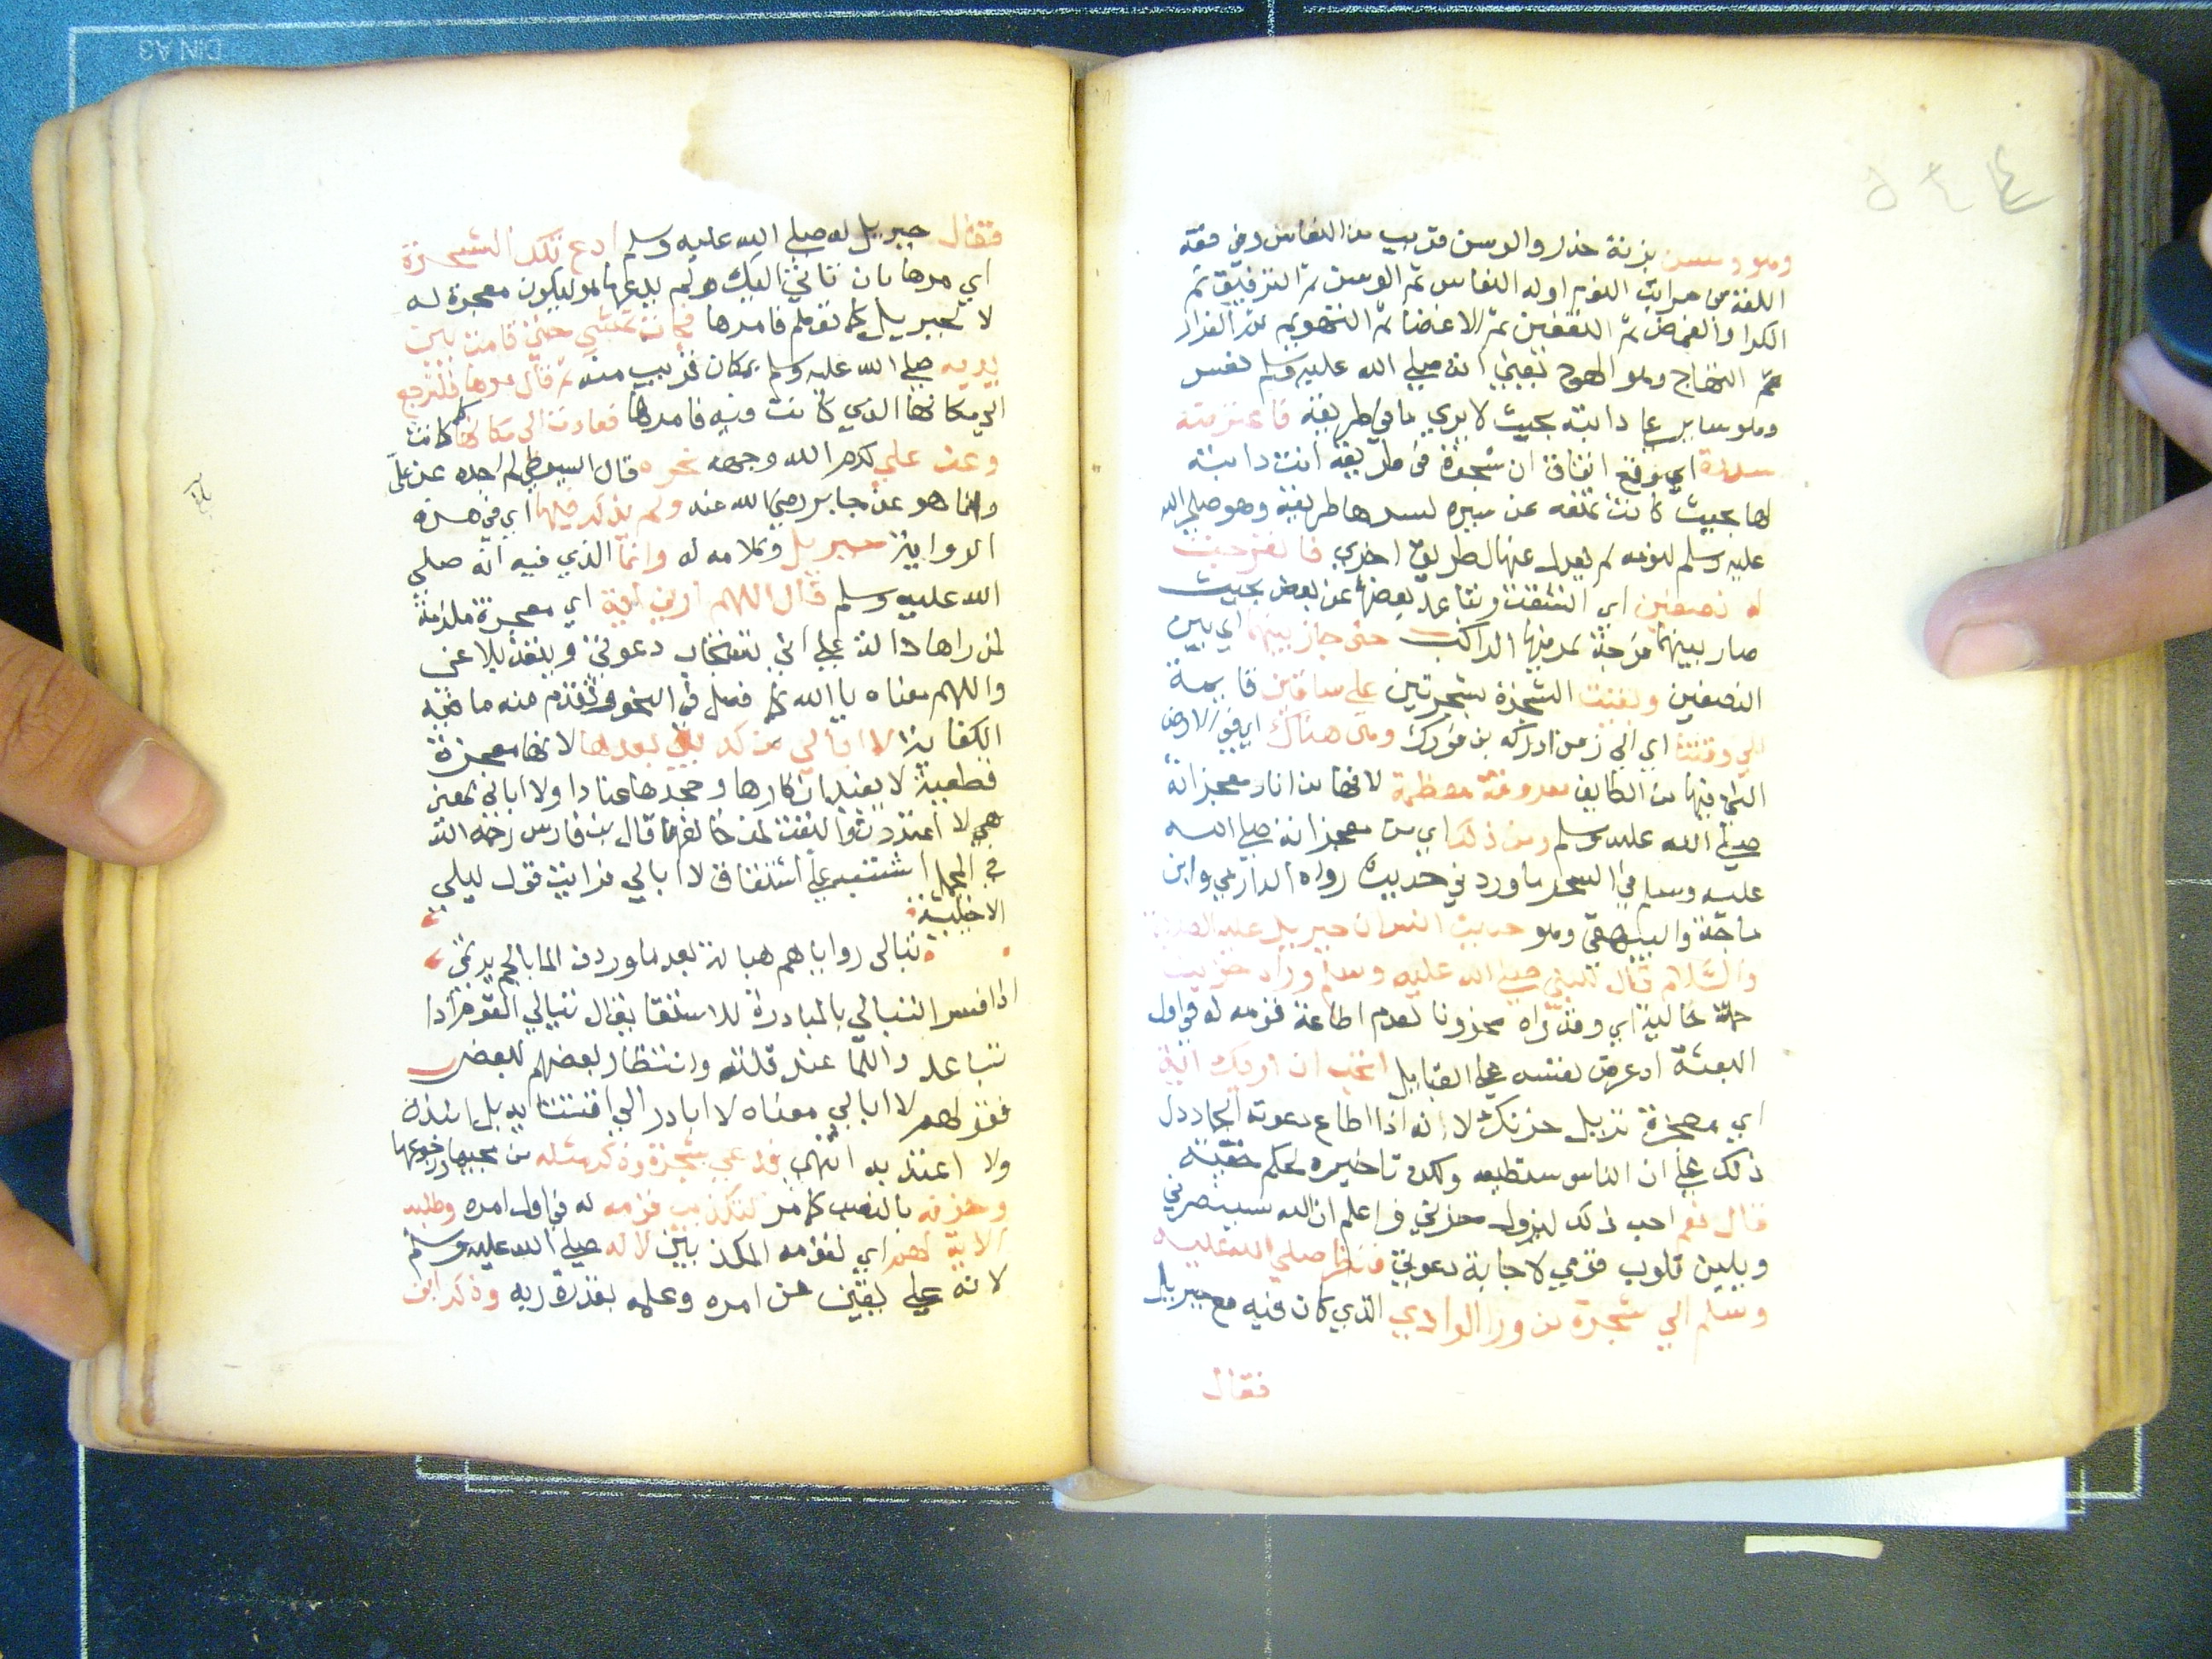 وهو وسن بزنة حذر والوسن قريب من النعاس وفي فقه
اللغة من مراتب النوم اوله النعاس ثم الوسن ثم الترنيق ثم
الكرا والغمض ثم التغفيق ثم الاغفا ثم التهويم ثم الغرار
ثم التهجاج وهو الهجوع يعني انه صلي الله عليه وسلم نعس
وهو ساير علي دابته بحيث لا يري ما في طريقه فاعترضته
سدرة اي وقع اتفاق ان شجرة في طريقه اتت دابته
لها بحيث كانت تمنعه عن سيره لسدها طريقه وهو صلي الله
عليه وسلم لنومه لم يعدل عنها لطريق اخري فانفرجت
له نصفين اي انشقت وتباعد بعضها عن بعض بحيث
صار بينهما فرجة يمر منها الراكب حتي جاز بينهما اي بين
النصفين وبقيت الشجرة شجرتين علي ساقين قايمة
الي وقتنا اي الي زمن ادركه بن فورك وهي هناك اي في الارض
التي فيها من الطايف معروفة معظمة لانها من اثار معجزاته
صلي الله عليه وسلم ومن ذلك اي من معجزاته صلي الله
عليه وسلم في الشجر ما ورد في حديث رواه الدارمي وابن
ماجة والبيهقي وهو حديث انس ان جبريل عليه الصلاة
والسلام قال للنبي صلي الله عليه وسلم وراه حزينا
جملة حالية اي وقد راه محزونا لعدم اطاعة قومه له في اول
البعثة اذ عرض نفسه علي القبايل اتحب ان اريك اية
اي معجزة تزيل حزنك لانه اذا اطاع دعوته الجماد دل
ذلك علي ان الناس ستطيعه ولكن تاخيره لحكم خفية
قال نعم احب ذلك ليزول حزني واعلم ان الله سينصرني
ويلين قلوب قومي لاجابة دعوتي فنظر صلي الله عليه
وسلم الي شجرة من ورا الوادي الذي كان فيه مع جبريل
فقال
فقال جبريل له صلي الله عليه وسلم ادع تلك الشجرة
اي مرها بان تاتي اليك ولم يدعها هو ليكون معجزة له
لا لجبريل كما تقدم فامرها فجات تمشي حتي قامت بين
يديه صلي الله عليه وسلم بمكان قريب منه ثم قال مرها فلترجع
الي مكانها الذي كانت فيه فامرها فعادت الي مكانها كما كانت
وعن علي كرم الله وجهه نحوه قال السيوطي لم اجده عن علي
وانما هو عن جابر رضي الله عنه ولم يذكر فيها اي في هذه
الرواية جبريل وكلامه له وانما الذي فيه انه صلي
الله عليه وسلم قال اللهم ارني اية اي معجزة ملزمة
لمن راها دالة علي اني تستجاب دعوتي وينفذ بلاغي
واللهم معناه يا الله كما فصل في النحو وتقدم منه ما فيه
الكفاية لا ابالي من كذبني بعدها لانها معجزة
قطعية لا يفيد انكارها وجحدها عنادا ولا ابالي بمعني
هي لا اعتد ولا التفت لمن خالفها قال بن فارس رحمه الله
في المجمل اشتبه علي اشتقاق لا ابالي فرايت قول ليلي
الاخيلية
تبالي رواياهم هبالة بعد ما وردن الما بالجم يرتمي
اذا فسر التبالي بالمبادرة للاستقا يقال تبالي القوم اذا
تباعد والما عند قلته وانتظار بعضهم لبعض
فقولهم لا ابالي معناه لا ابادر الي اقتنائه بل انبذه
ولا اعتد به انتهي فدعي شجرة وذكر مثله من مجيها ورجوعها
وحزنه بالنصب كما مر لتكذيب قومه له في اول امره وطلبه
الاية لهم اي لقومه المكذبين لا له صلي الله عليه وسلم
لانه علي يقين من امره وعلمه بقدرة ربه وذكر ابن